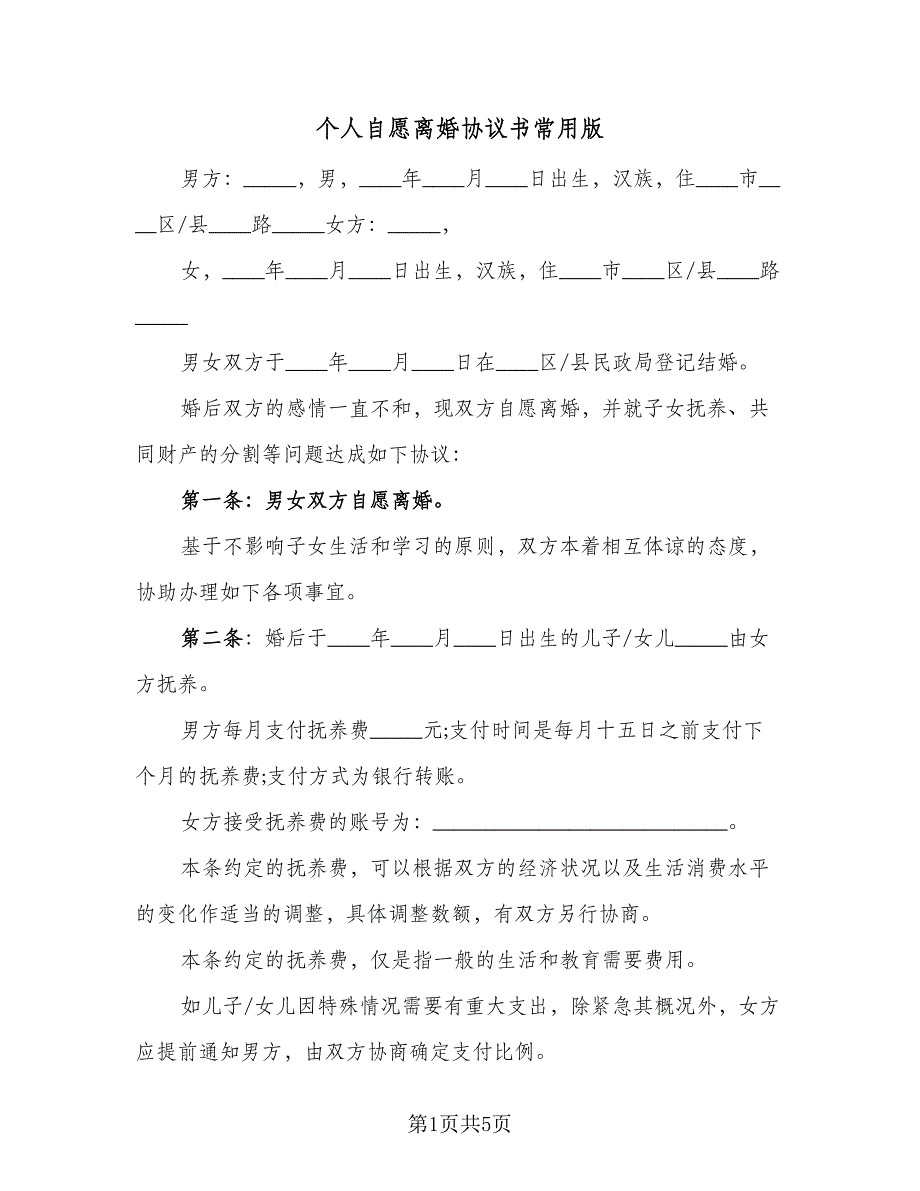 个人自愿离婚协议书常用版
男方：_____，男，____年____月____日出生，汉族，住____市__
__区/县____路_____女方：_____，
女，____年____月____日出生，汉族，住____市____区/县____路
_____
男女双方于____年____月____日在____区/县民政局登记结婚。
婚后双方的感情一直不和，现双方自愿离婚，并就子女抚养、共
同财产的分割等问题达成如下协议：
第一条：男女双方自愿离婚。
基于不影响子女生活和学习的原则，双方本着相互体谅的态度，
协助办理如下各项事宜。
第二条：婚后于____年____月____日出生的儿子/女儿_____由女
方抚养。
男方每月支付抚养费_____元;支付时间是每月十五日之前支付下
个月的抚养费;支付方式为银行转账。
女方接受抚养费的账号为：____________________________。
本条约定的抚养费，可以根据双方的经济状况以及生活消费水平
的变化作适当的调整，具体调整数额，有双方另行协商。
本条约定的抚养费，仅是指一般的生活和教育需要费用。
如儿子/女儿因特殊情况需要有重大支出，除紧急其概况外，女方
应提前通知男方，由双方协商确定支付比例。
第1页共5页